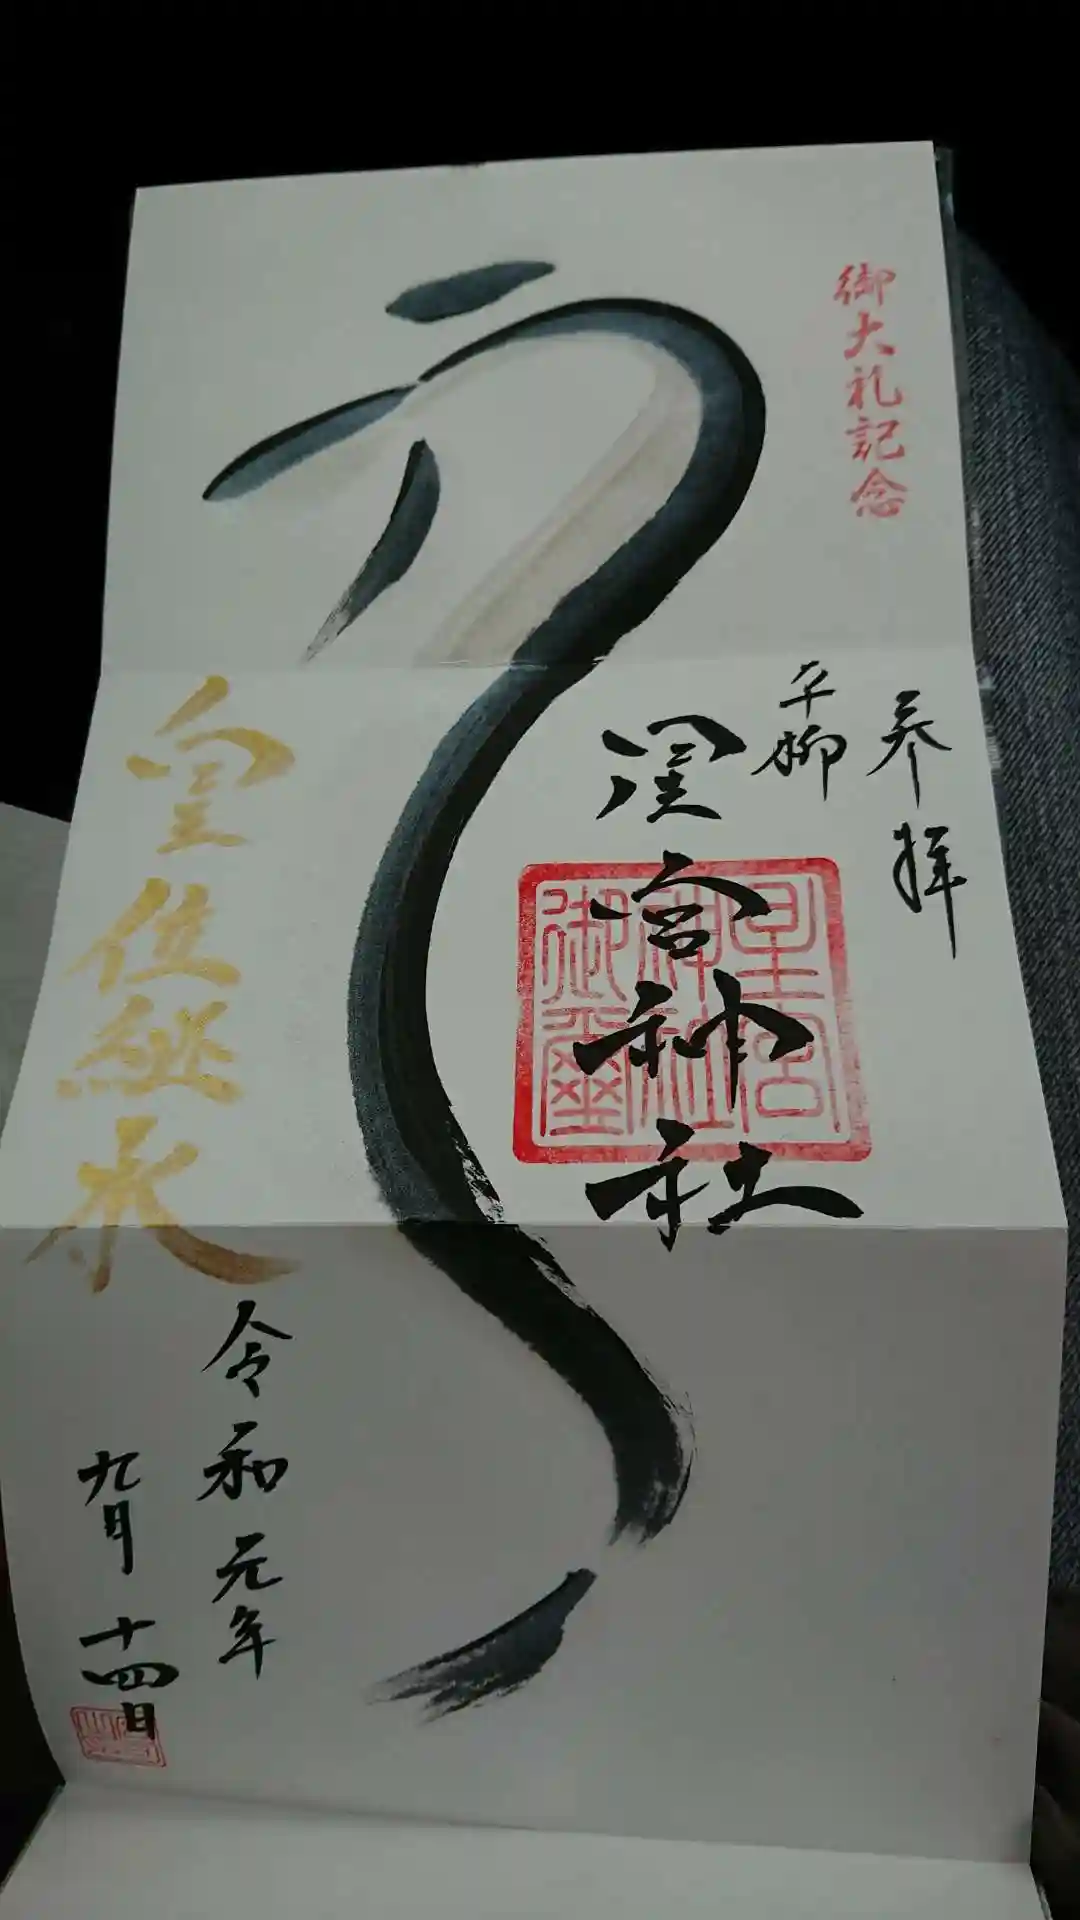 御大礼記念
奉拝
平柳
星宮神社
星宮
神社
御璽
皇位継承
令和元年
九月十四日